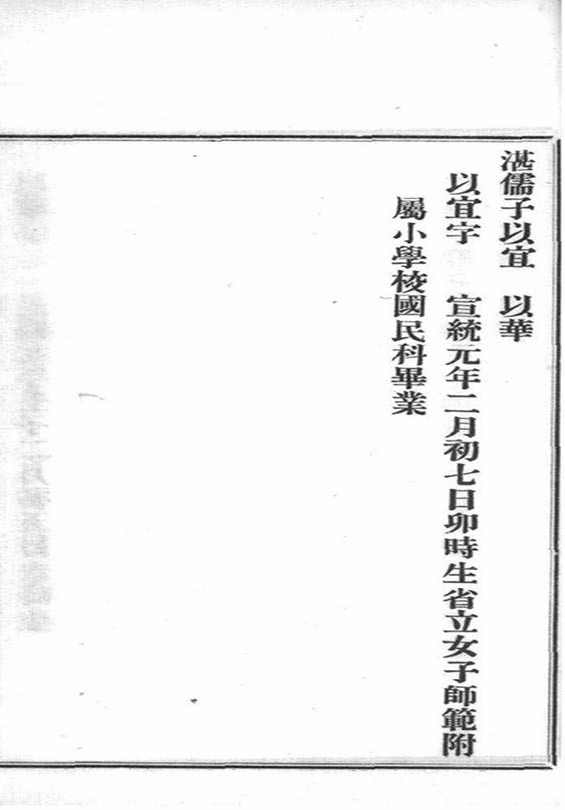 湛儒子以宜　以華
以宜字　　宣統元年二月初七日卯時生省立女子師範附
屬小學校國民科畢業